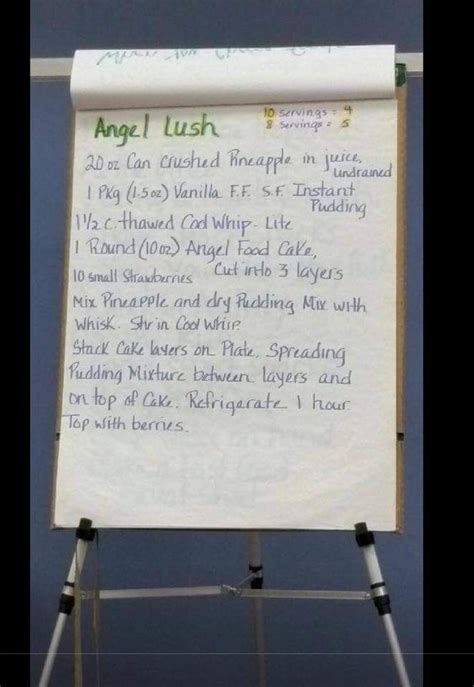 Angel Lush
10 servings = 4
8 servings = 5
20 oz Can crushed Pineapple in juice,
undrained
1 Pkg (1.5 oz) Vanilla F.F. S.F. Instant
Pudding
1 1/2 c. thawed Cool Whip - Lite
1 Round (10 oz) Angel Food Cake,
Cut into 3 layers
10 small Strawberries
Mix Pineapple and dry Pudding Mix with
Whisk. Stir in Cool Whip.
Stack Cake layers on Plate, Spreading
Pudding Mixture between layers and
on top of Cake. Refrigerate 1 hour.
Top with berries.